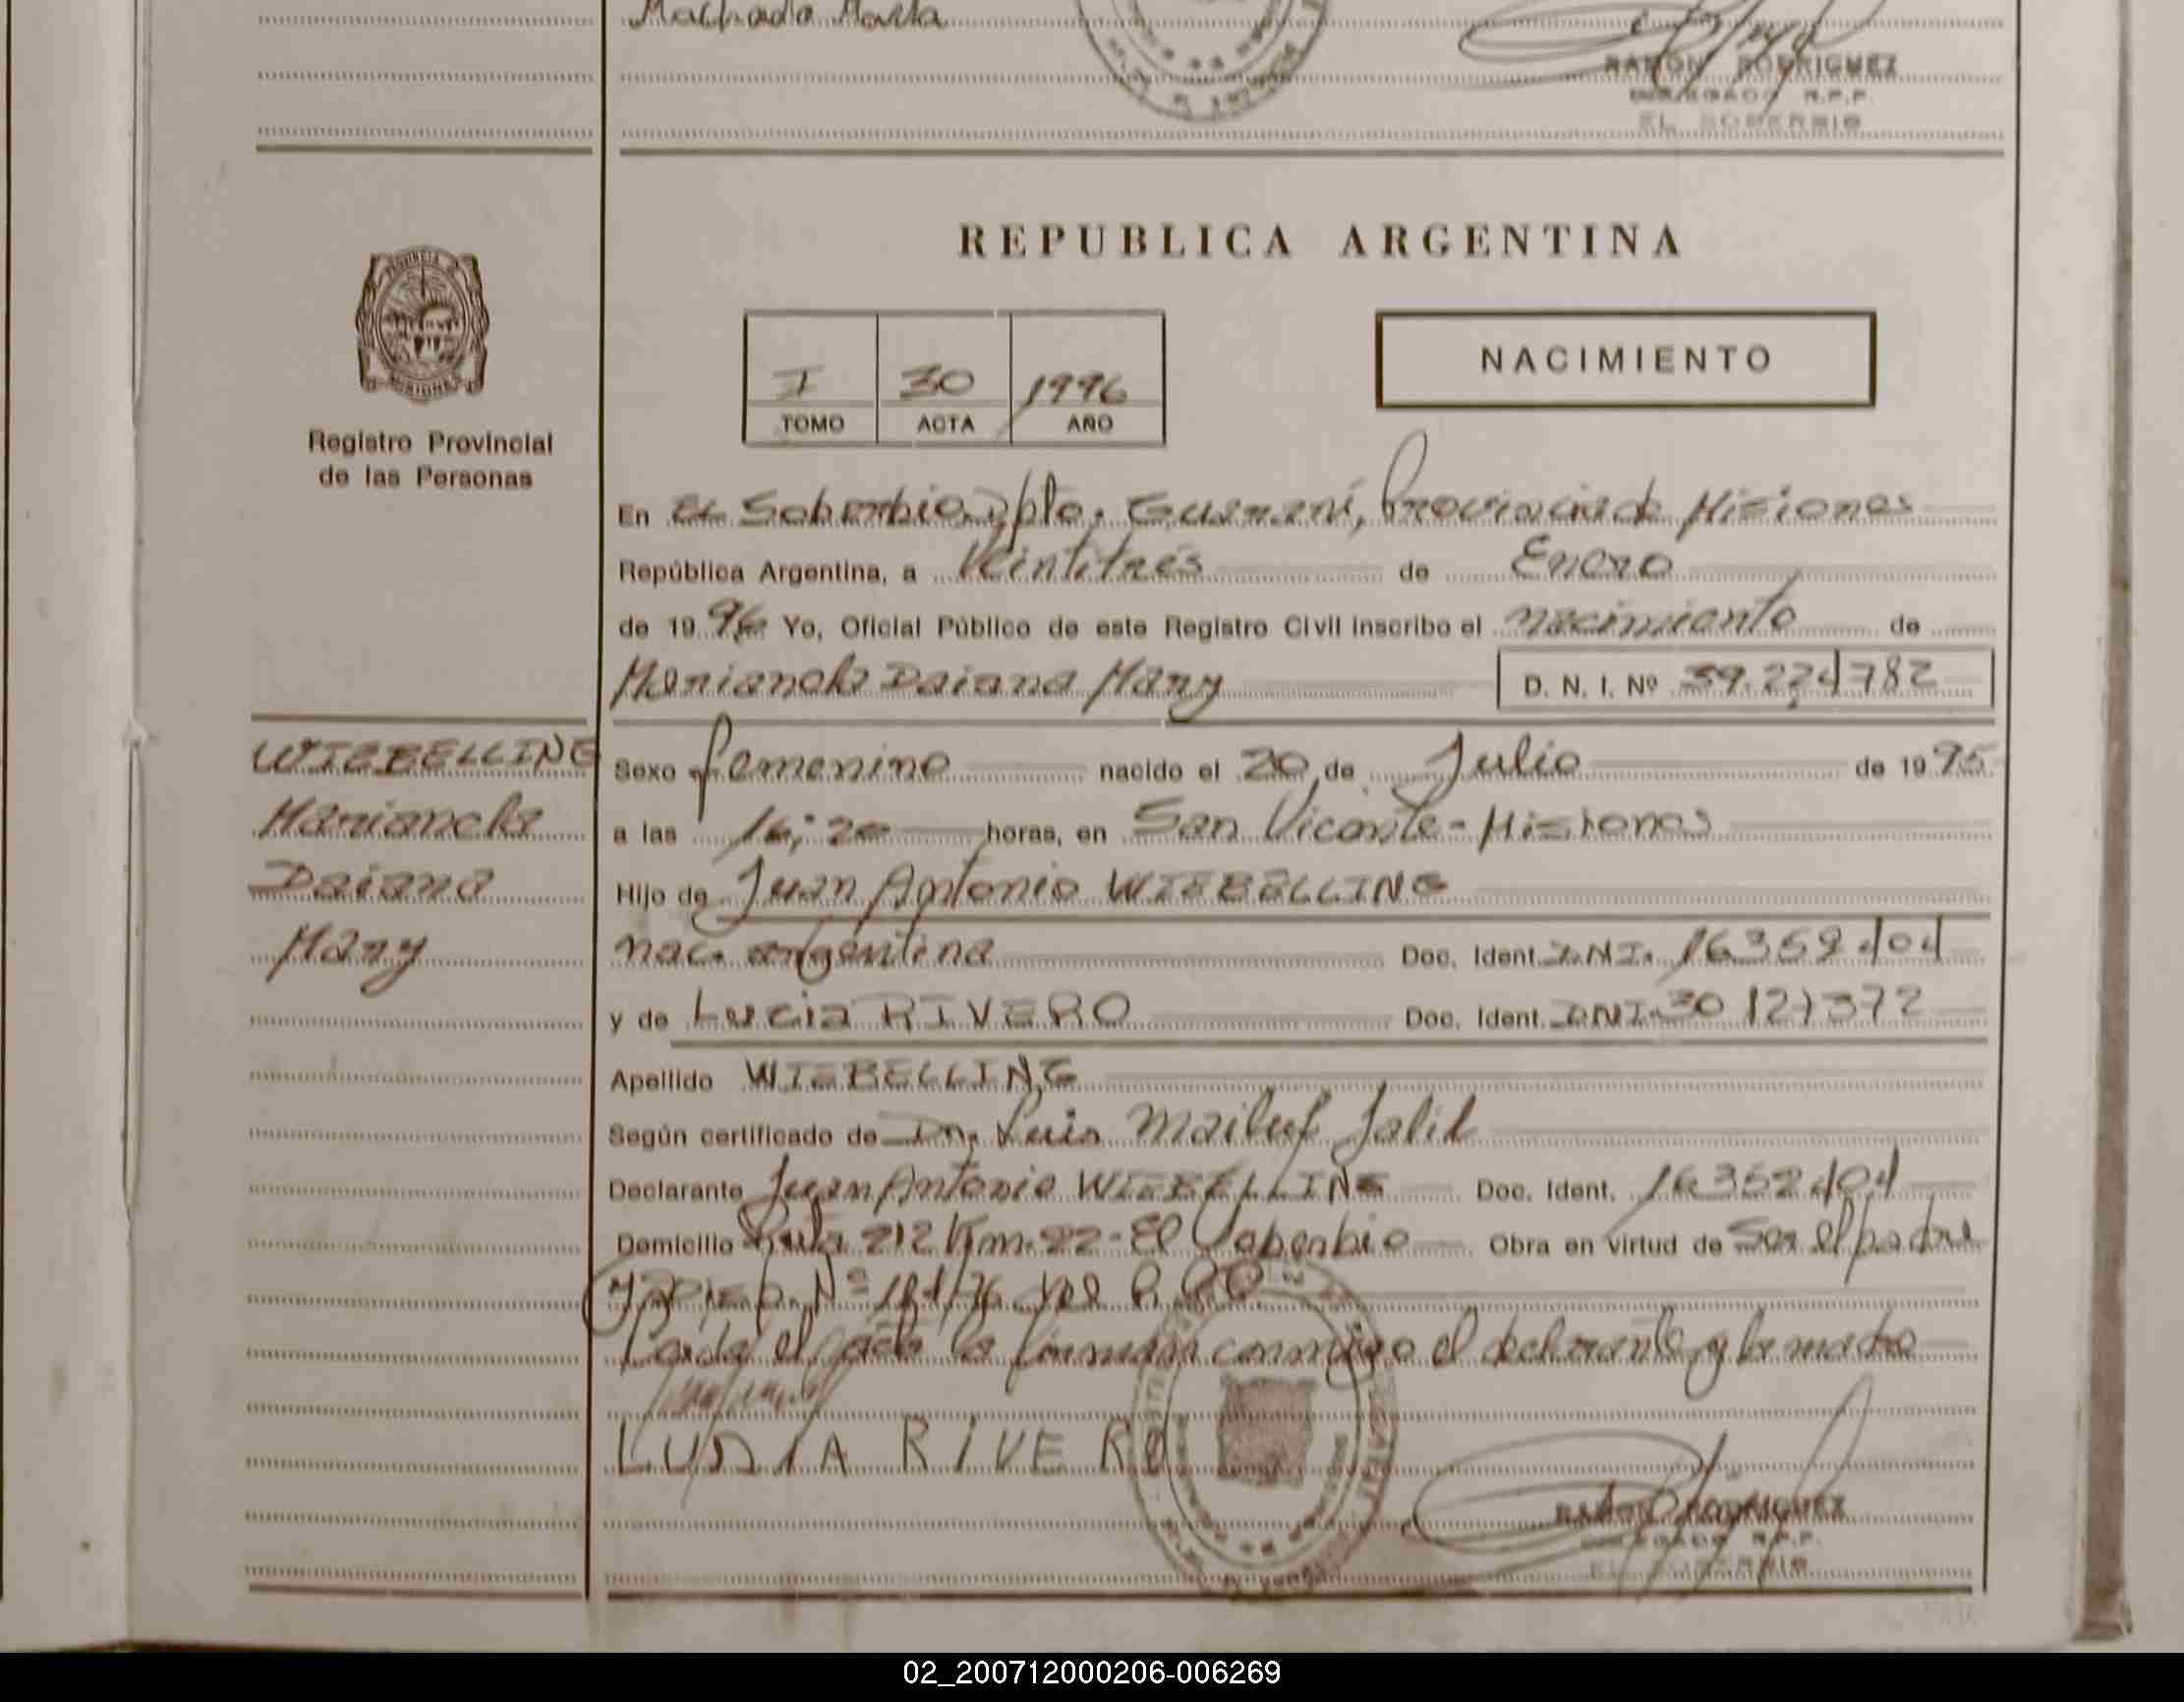 Machado Marta
RAMON RODRIGUEZ
DELEGADO R.P.P.
EL SOBERBIO
REPUBLICA ARGENTINA
PROVINCIA D
MISIONES
Registro Provincial
de las Personas
I 30 1996
TOMO ACTA AÑO
NACIMIENTO
En El Soberbio, Dpto. Guaraní, Provincia de Misiones
República Argentina, a Veintitrés de Enero
de 1996 Yo, Oficial Público de este Registro Civil inscribo el nacimiento de
Marianela Daiana Mary D. N. I. Nº 39.224782
WIEBELLING
Marianela
Daiana
Mary
Sexo femenino nacido el 20 de Julio de 1995
a las 16:20 horas, en San Vicente - Misiones
Hijo de Juan Antonio WIEBELLING
nac. argentina Doc. Ident. DNI. 16352404
y de Lucia RIVERO Doc. Ident. DNI. 30127372
Apellido WIEBELLING
Según certificado de Dr. Luis Mailuf Jalil
Declarante Juan Antonio WIEBELLING Doc. Ident. 16352404
Domicilio Ruta 212 Km. 22 - El Soberbio Obra en virtud de Ser el padre
y Disp. Nº
Leida el acta la firman conmigo el declarante y la madre
LUSIA RIVERO
RAMON RODRIGUEZ
DELEGADO R.P.P.
EL SOBERBIO
02_200712000206-006269